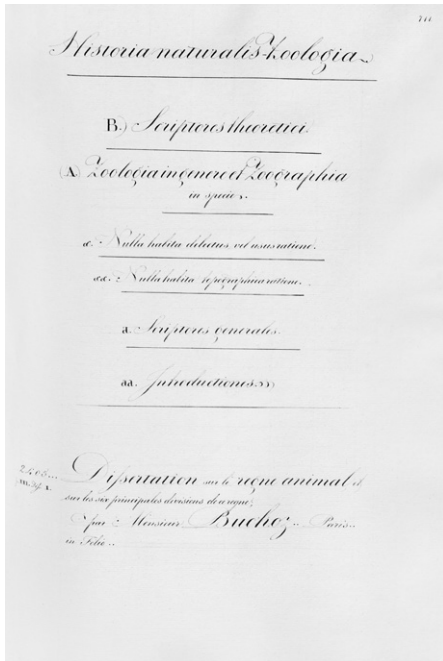 Historia naturalis Zoologia
B.) Scriptores theoretici.
(A Zoologia in genere et Zoographia
in specie.
α. Nulla habita delectus vel usus ratione.
αα. Nulla habita topographica ratione.
a Scriptores generales.
aa. Introductiones.
Dissertation sur le regne animal et
sur les six principales divisions de ce regne,
par Monsieur Buchoz.. Paris..
in Folio..